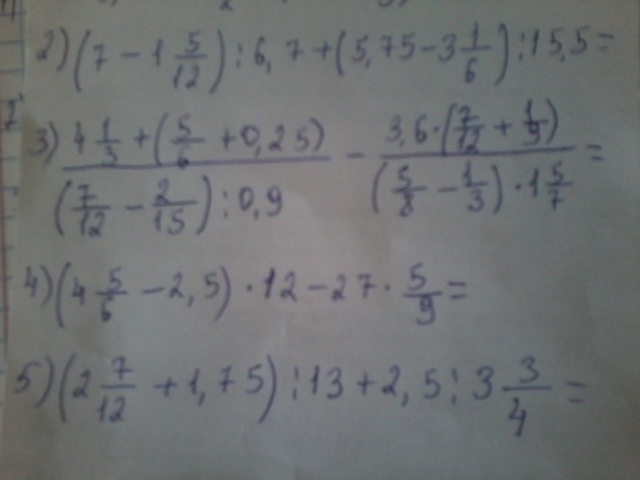 2) (7 - 1 5/12) : 6,7 + (5,75 - 3 1/6) : 15,5 =
3) (4 1/3 + (5/6 + 0,25)) / ((7/12 - 2/15) : 0,9) - (3,6 · (7/12 + 1/9)) / ((5/8 - 1/3) · 1 5/7) =
4) (4 5/6 - 2,5) · 12 - 27 · 5/9 =
5) (2 7/12 + 1,75) : 13 + 2,5 : 3 3/4 =